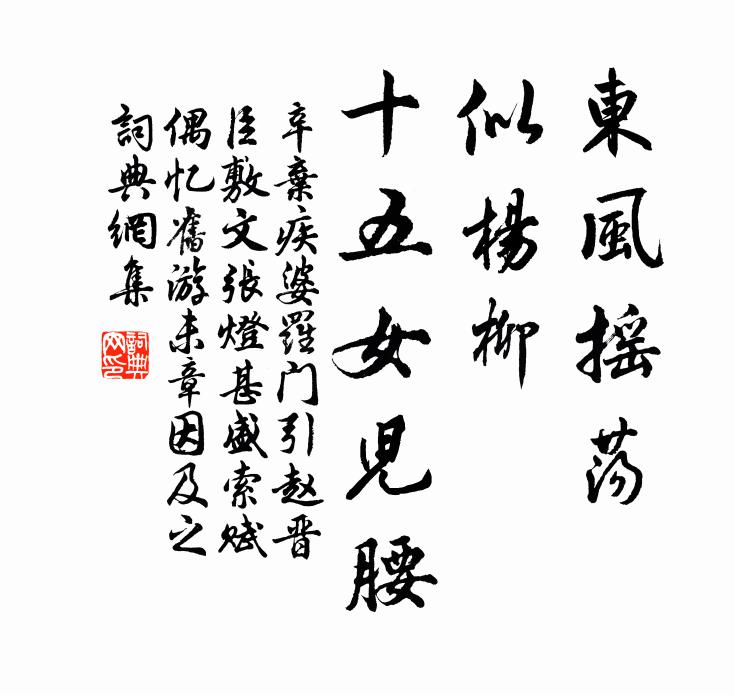 東風搖蕩
似楊柳
十五女兒腰
辛棄疾婆羅門引赵晋
臣敷文張燈甚盛索赋
偶忆舊游末章因及之
詞典網集
詞典
网印